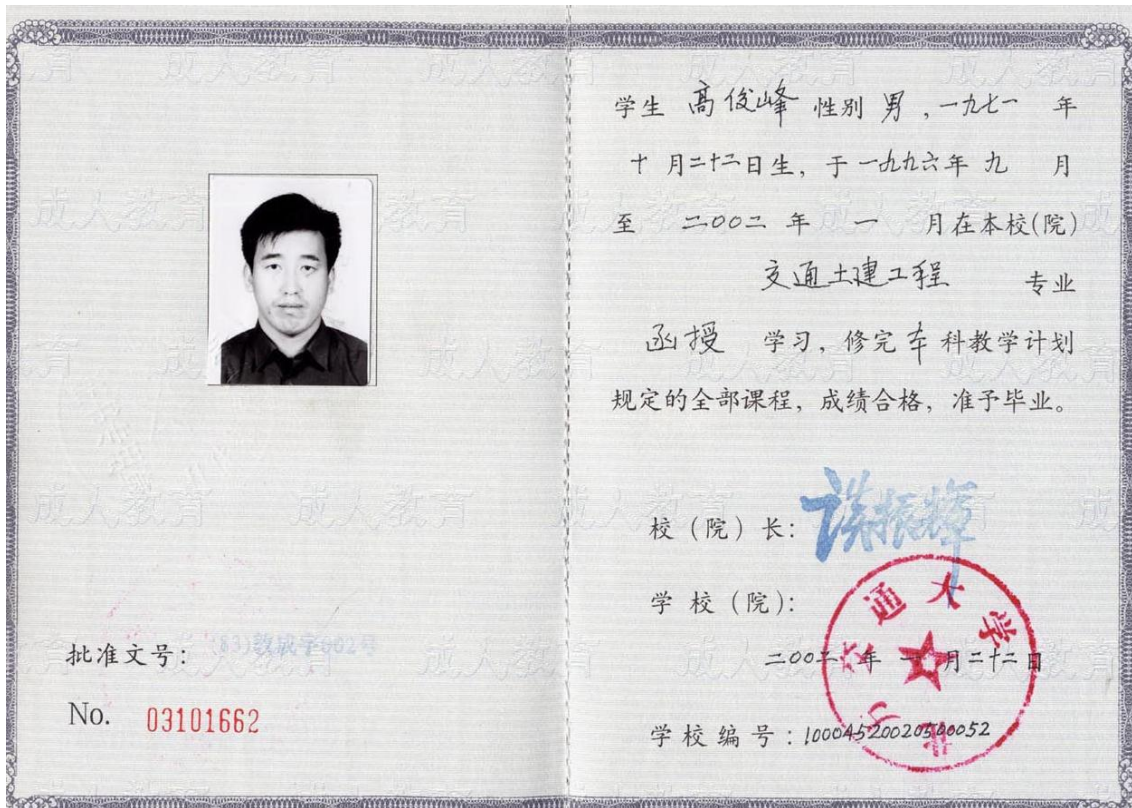 批准文号：(83)教成字002号
No. 03101662
学生 高俊峰 性别 男，一九七一 年
十 月二十二日生，于一九九六年 九 月
至 二00二 年 一 月在本校(院)
交通土建工程 专业
函授 学习，修完 本 科教学计划
规定的全部课程，成绩合格，准予毕业。
校（院）长：
学 校（院）：
北方交通大学
二00二 年 一 月二十二日
学 校 编 号：10004520020500052
成人教育